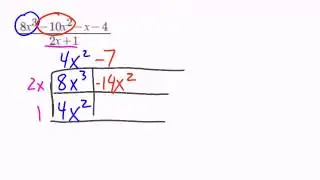 8x³ - 10x² - x - 4
2x + 1
4x² - 7
2x 8x³ -14x²
1 4x²